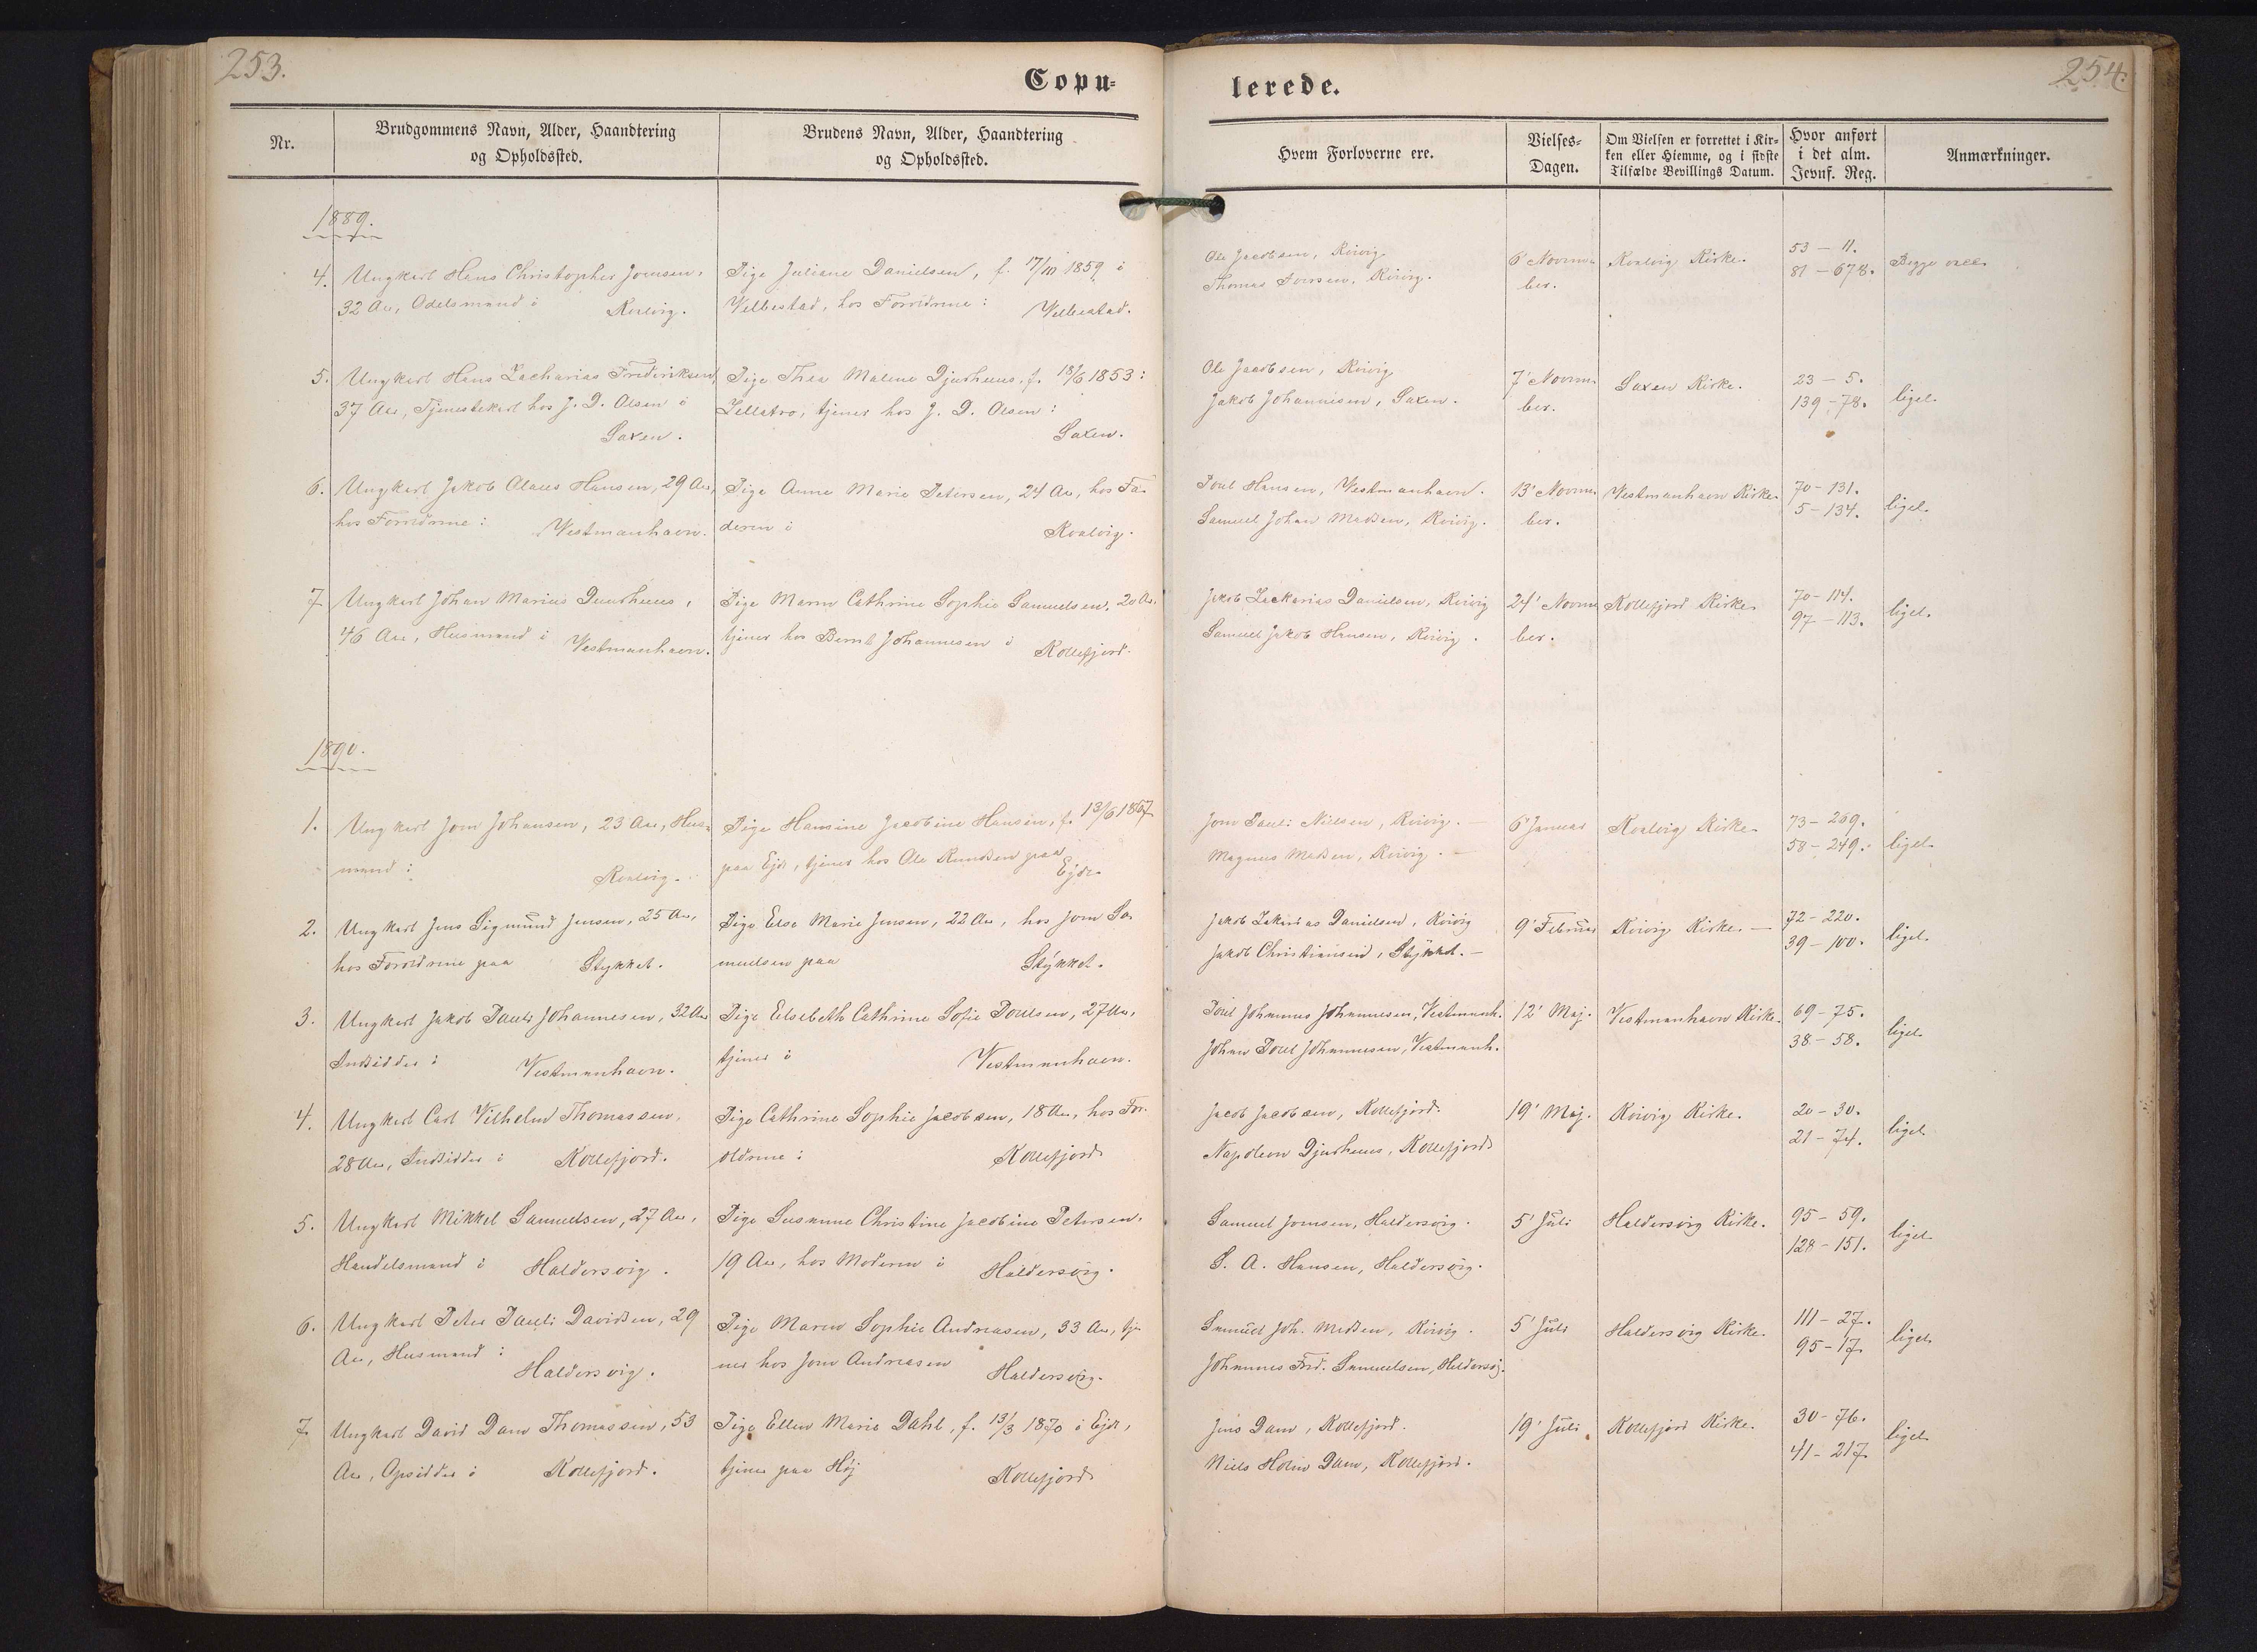 253.
Copu-
Nr.
Brudgommens Navn, Alder, Haandtering
og Opholdssted.
Brudens Navn, Alder, Haandtering
og Opholdssted.
1889.
4. Ungkarl Hans Christopher Joensen,
32 Aar, Odelsmand i
Kvalvig.
Pige Juliane Danielsen, f. 1859 i
Velbestad, hos Forældrene:
Velbestad.
5. Ungkarl Hans Zacharias Frederiksen
37 Aar, Tjenestekarl hos J. D. Olsen i
Saxen.
Pige Thea Malene Djurhuus, f. 18/6 1853:
tjener hos J. D. Olsen:
Saxen.
6. Ungkarl Jakob Olaus Hansen, 29 Aar,
hos Forældrene:
Vestmanhavn.
Pige Anna Marie Petersen, 24 Aar, hos Fa-
deren i
Kvalvig.
7. Ungkarl Johan Marius Djurhuus,
46 Aar, Husmand i
Vestmanhavn.
Pige Maren Cathrine Sophie Samuelsen, 20 Aar,
tjener hos Bernt Johannesen i
Kollefjord.
1890.
1. Ungkarl Joen Johansen, 23 Aar, Hus-
mand i
Kvalvig.
Pige Hansine Jacobine Hansen, f. 13/6 1867
paa Ejde, tjener hos Ole paa
Ejde.
2. Ungkarl Jens Sigmund Jensen, 25 Aar,
hos Forældrene paa
Stykket.
Pige Else Marie Jensen, 22 Aar, hos Joen Sa-
muelsen paa
Stykket.
3. Ungkarl Jakob Pauli Johannesen, 32 Aar
Indsidder i
Vestmanhavn.
Pige Elsebeth Cathrine Sofie Poulsen, 27 Aar,
tjener i
Vestmanhavn.
4. Ungkarl Carl Vilhelm Thomassen,
28 Aar, Indsidder i
Kollefjord.
Pige Cathrine Sophie Jacobsen, 18 Aar, hos For-
ældrene:
Kollefjord
5. Ungkarl Mikkel Samuelsen, 27 Aar,
Handelsmand i
Haldersvig.
Pige Susanne Christine Jacobine Petersen,
19 Aar, hos Moderen i
Haldersvig.
6. Ungkarl Peter Pauli Davidsen, 29
Aar, Husmand:
Haldersvig.
Pige Maren Sophie Andreasen, 33 Aar, tje-
ner hos Joen Andreasen
Haldersvig.
7. Ungkarl David Dam Thomassen, 53
Aar, Opsidder i
Kollefjord.
Pige Ellen Marie Dahl, f. 13/3 1870 i Ejde,
tjener paa Høj
Kollefjord
254.
lerede.
Hvem Forloverne ere.
Vielses-
Dagen.
Om Vielsen er forrettet i Kir-
ken eller Hiemme, og i sidste
Tilfælde Bevillings Datum.
Hvor anført
i det alm.
Jevnf. Reg.
Anmærkninger.
Ole Jacobsen, Kvivig
Thomas Iversen, Kvivig.
6' Novem-
ber.
Kvalvig Kirke.
53 - 11.
81 - 678.
Begge vacc.
Ole Jacobsen, Kvivig
Jakob Johannesen, Saxen.
7' Novem-
ber.
Saxen Kirke.
23 - 5.
139 - 78.
liget.
Poul Hansen, Vestmanhavn.
Samuel Johan Madsen, Kvivig.
13' Novem-
ber.
Vestmanhavn Kirke.
70 - 131.
5 - 134.
liget.
Jakob Zackarias Danielsen, Kvivig
Samuel Jakob Hansen, Kvivig.
24' Novem-
ber.
Kollefjord Kirke.
70 - 114.
97 - 113.
liget.
Joen Pauli Nielsen, Kvivig.
Magnus Madsen, Kvivig.
6' Januar
Kvalvig Kirke.
73 - 269.
58 - 249.
liget.
Jakob Zakarias Danielsen, Kvivig
Jakob Christiansen, Stykket.
9' Februar
Kvivig Kirke.
72 - 220.
39 - 100.
liget.
Poul Johannes Johannesen, Vestmanh.
Johan Poul Johannesen, Vestmanh.
12' Maj.
Vestmanhavn Kirke.
69 - 75.
38 - 58.
liget.
Jacob Jacobsen, Kollefjord.
Napoleon Djurhuus, Kollefjord
19' Maj.
Kvivig Kirke.
20 - 30.
21 - 74.
liget.
Samuel Joensen, Haldersvig.
S. A. Hansen, Haldersvig.
5' Juli
Haldersvig Kirke.
95 - 59.
128 - 151.
liget.
Samuel Joh. Madsen, Kvivig.
Johannes Fred. Samuelsen, Haldersvig.
5' Juli
Haldersvig Kirke.
111 - 27.
95 - 17.
liget.
Jens Dam, Kollefjord.
Niels Holm Dam, Kollefjord.
19' Juli
Kollefjord Kirke.
30 - 76.
41 - 217.
liget.